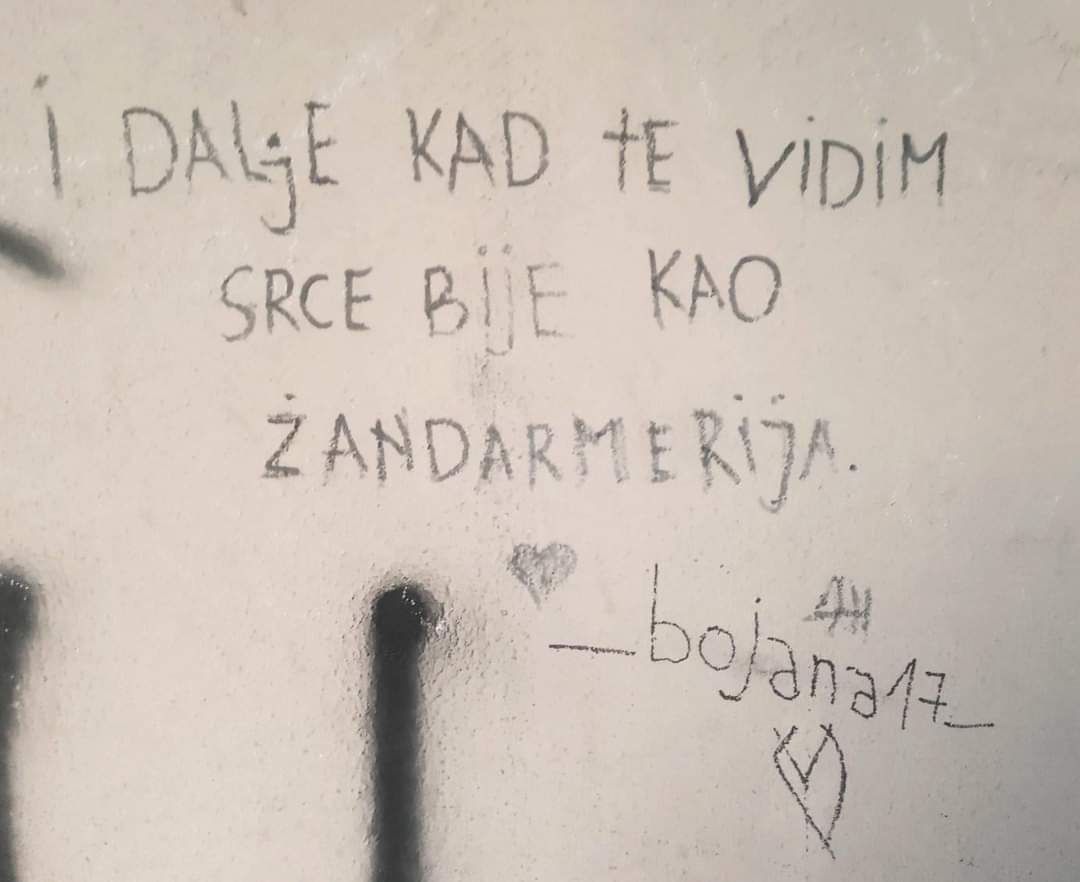 I DALjE KAD TE VIDIM
SRCE BIJE KAO
ŻANDARMERIJA.
_bojana17_